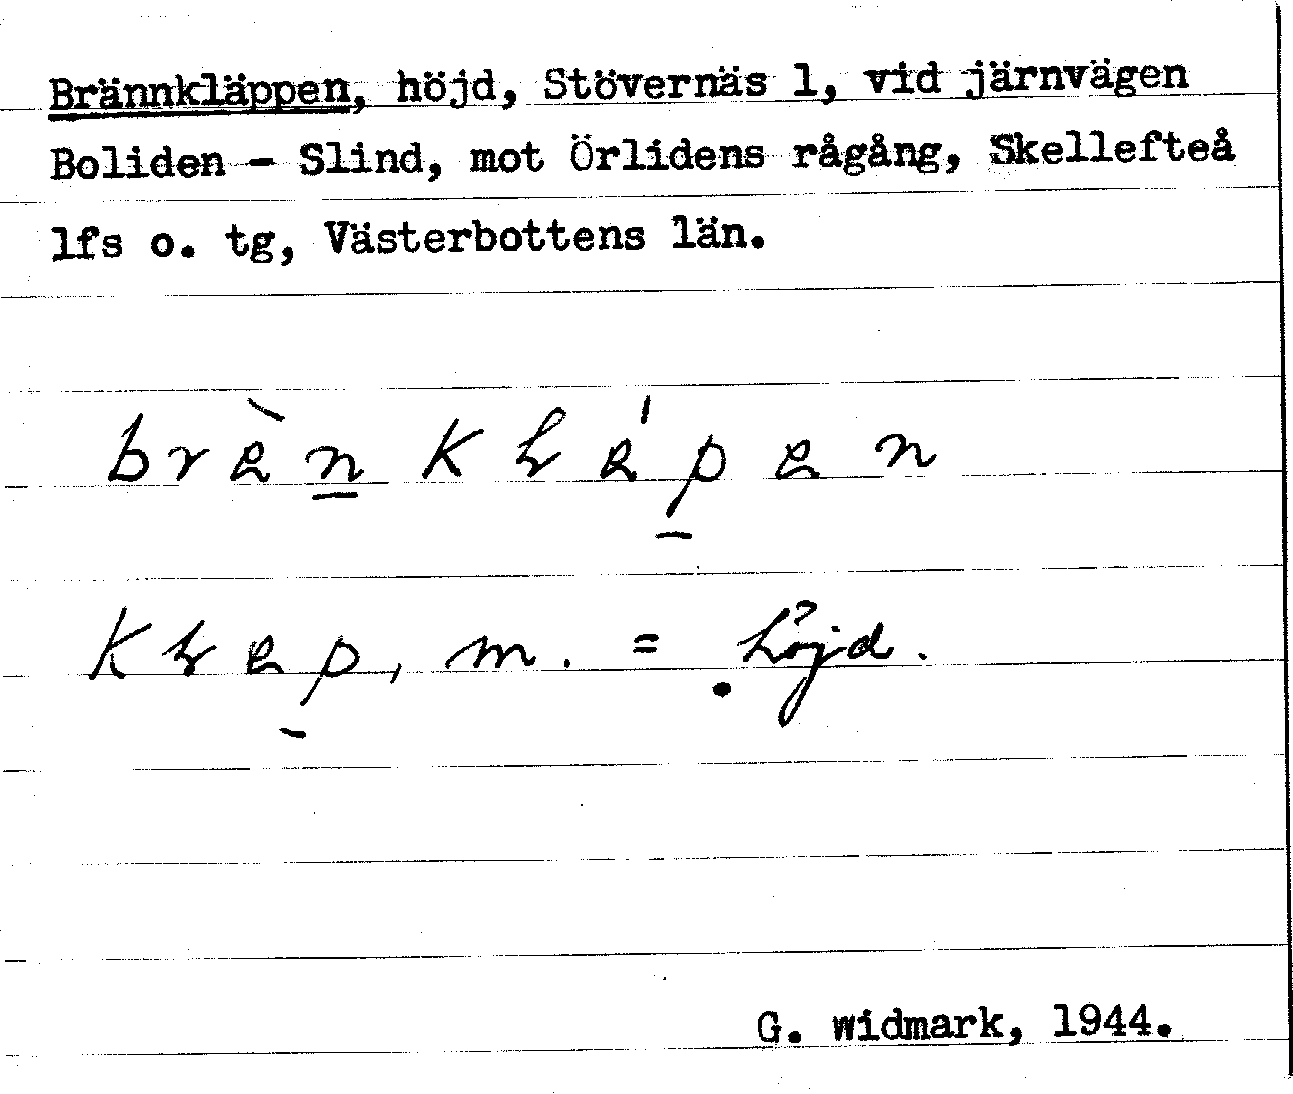 Brännkläppen, höjd, Stövernäs 1, vid järnvägen
Boliden - Slind, mot Örlidens rågång, Skellefteå
lfs o. tg, Västerbottens län.
m. = höjd.
G. Widmark, 1944.